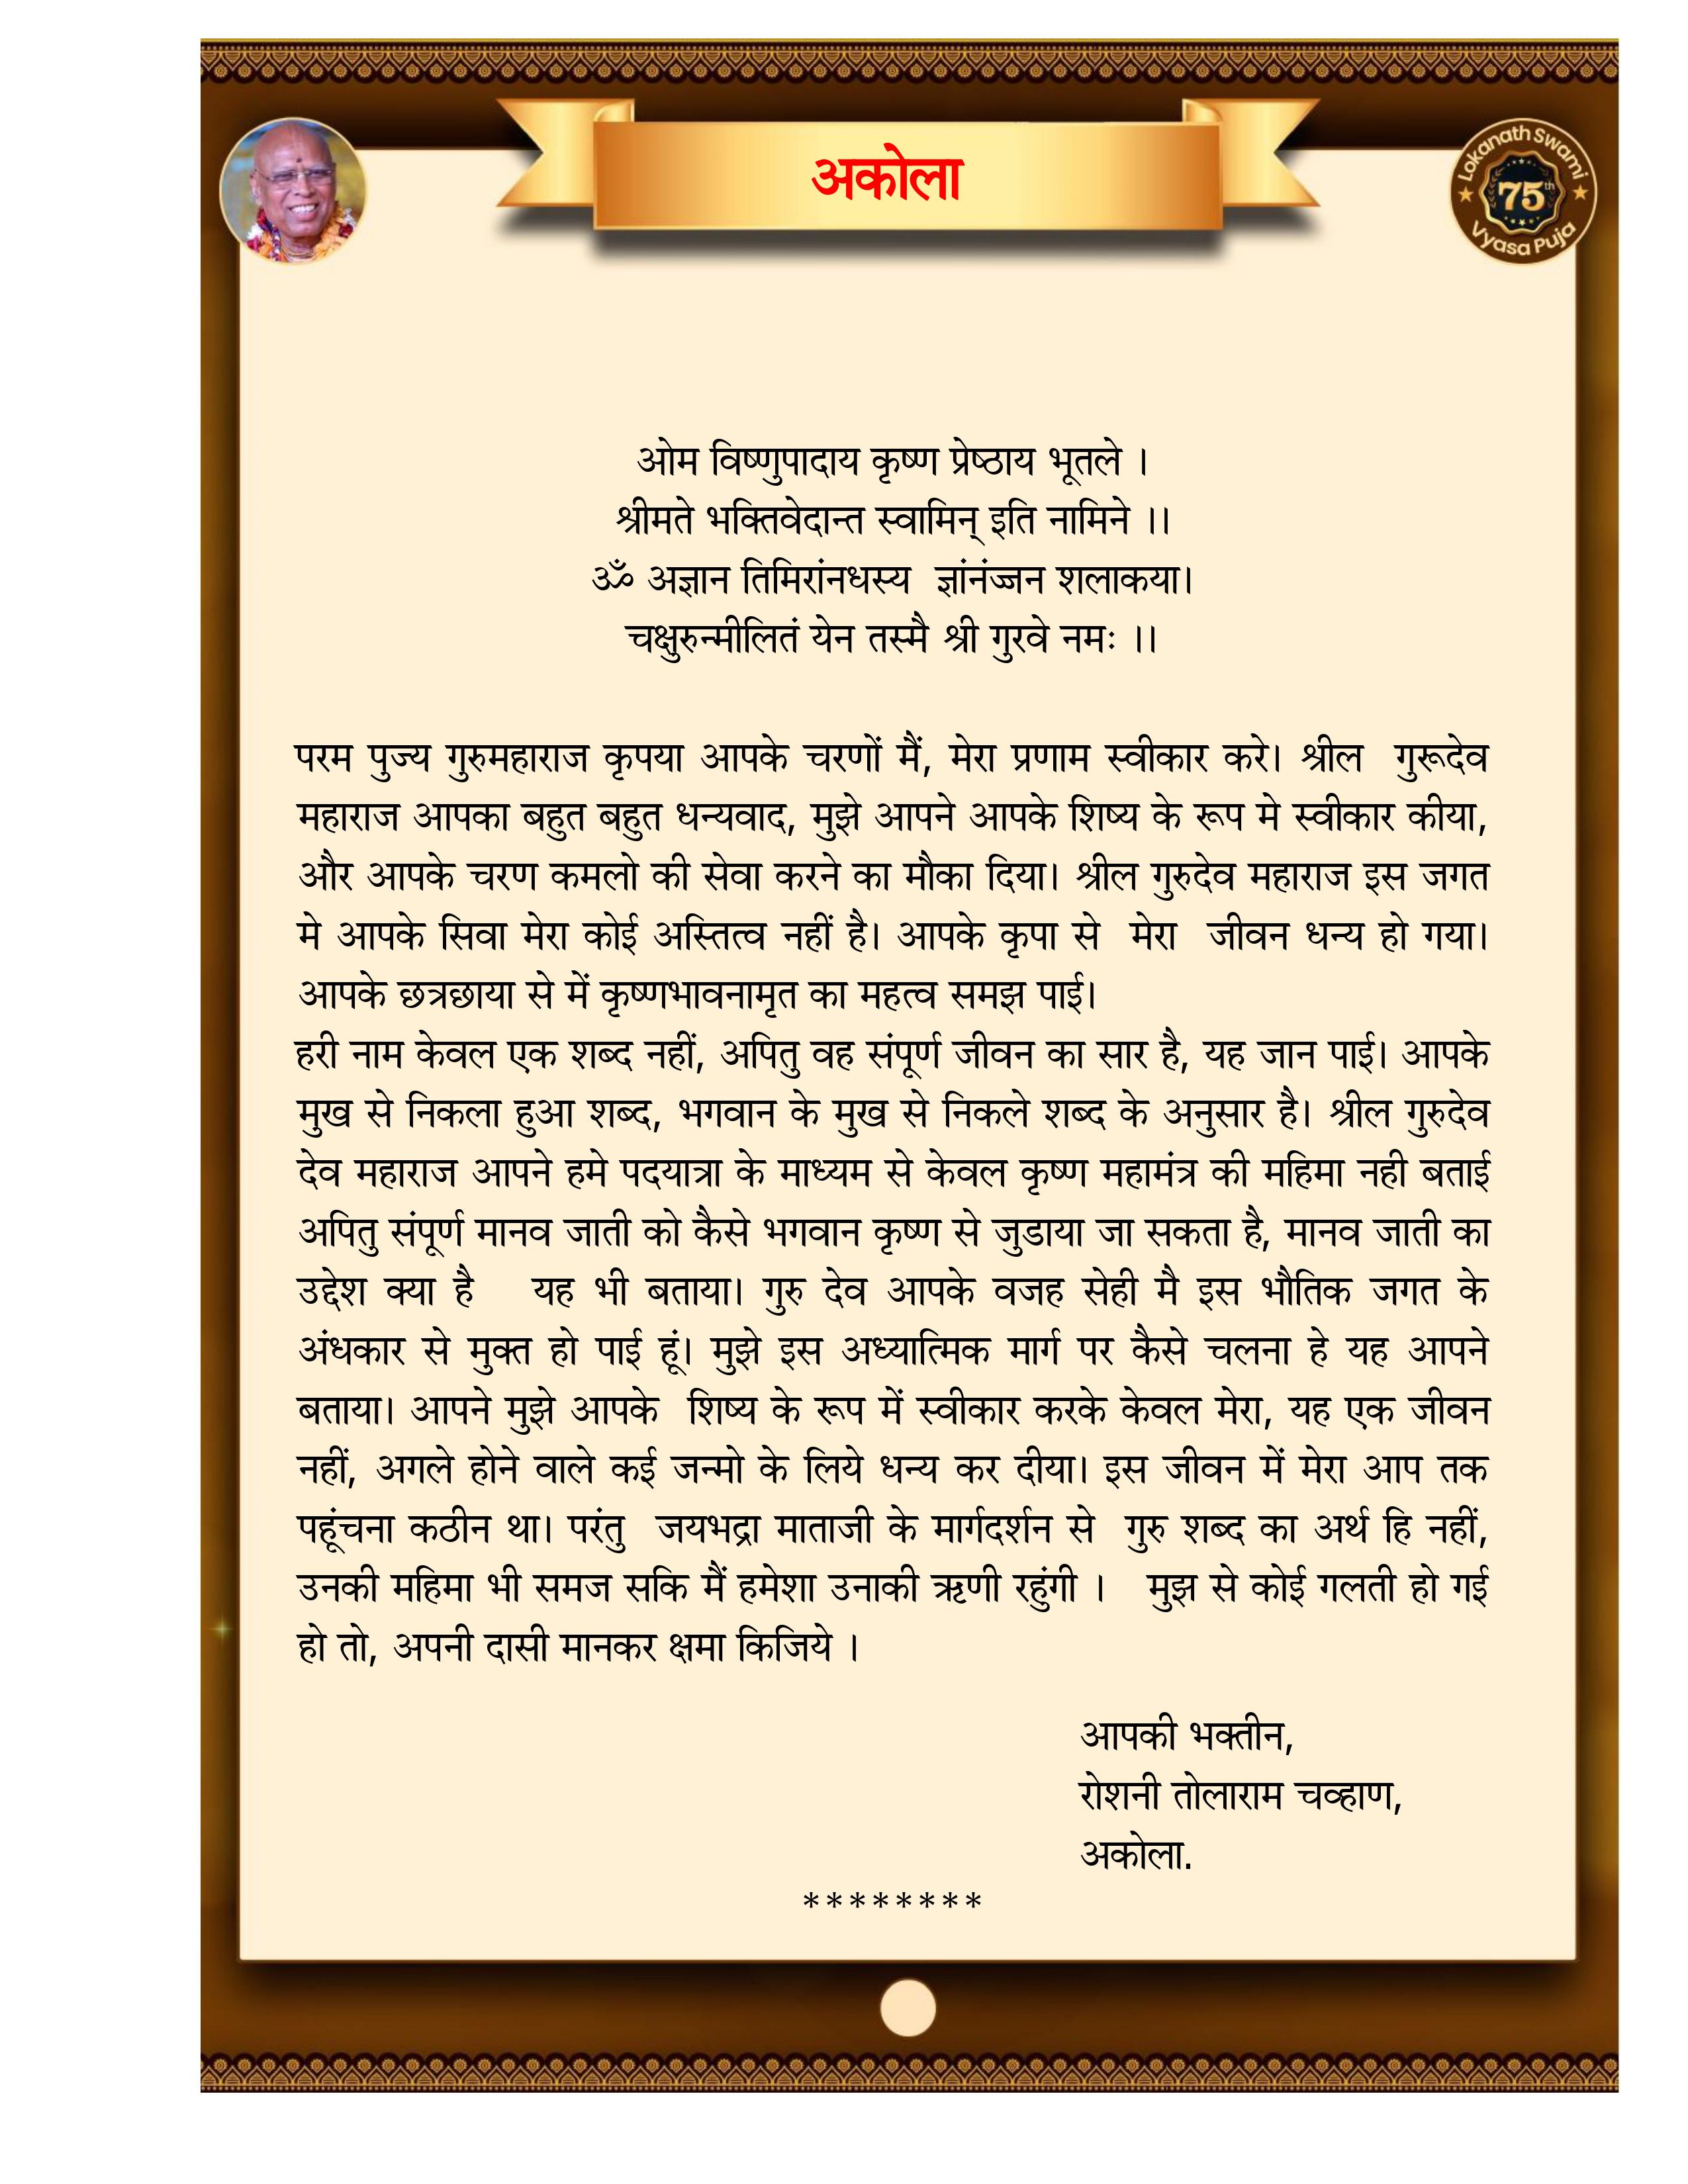 अकोला
Lokanath Swami
75th
Vyasa Puja
ओम विष्णुपादाय कृष्ण प्रेष्ठाय भूतले ।
श्रीमते भक्तिवेदान्त स्वामिन् इति नामिने ।।
ॐ अज्ञान तिमिरांनधस्य ज्ञांनंज्जन शलाकया।
चक्षुरुन्मीलितं येन तस्मै श्री गुरवे नमः ।।
परम पुज्य गुरुमहाराज कृपया आपके चरणों मैं, मेरा प्रणाम स्वीकार करे। श्रील गुरूदेव
महाराज आपका बहुत बहुत धन्यवाद, मुझे आपने आपके शिष्य के रूप मे स्वीकार कीया,
और आपके चरण कमलो की सेवा करने का मौका दिया। श्रील गुरुदेव महाराज इस जगत
मे आपके सिवा मेरा कोई अस्तित्व नहीं है। आपके कृपा से मेरा जीवन धन्य हो गया।
आपके छत्रछाया से में कृष्णभावनामृत का महत्व समझ पाई।
हरी नाम केवल एक शब्द नहीं, अपितु वह संपूर्ण जीवन का सार है, यह जान पाई। आपके
मुख से निकला हुआ शब्द, भगवान के मुख से निकले शब्द के अनुसार है। श्रील गुरुदेव
देव महाराज आपने हमे पदयात्रा के माध्यम से केवल कृष्ण महामंत्र की महिमा नही बताई
अपितु संपूर्ण मानव जाती को कैसे भगवान कृष्ण से जुडाया जा सकता है, मानव जाती का
उद्देश क्या है यह भी बताया। गुरु देव आपके वजह सेही मै इस भौतिक जगत के
अंधकार से मुक्त हो पाई हूं। मुझे इस अध्यात्मिक मार्ग पर कैसे चलना हे यह आपने
बताया। आपने मुझे आपके शिष्य के रूप में स्वीकार करके केवल मेरा, यह एक जीवन
नहीं, अगले होने वाले कई जन्मो के लिये धन्य कर दीया। इस जीवन में मेरा आप तक
पहूंचना कठीन था। परंतु जयभद्रा माताजी के मार्गदर्शन से गुरु शब्द का अर्थ हि नहीं,
उनकी महिमा भी समज सकि मैं हमेशा उनाकी ऋणी रहुंगी । मुझ से कोई गलती हो गई
हो तो, अपनी दासी मानकर क्षमा किजिये ।
आपकी भक्तीन,
रोशनी तोलाराम चव्हाण,
अकोला.
********